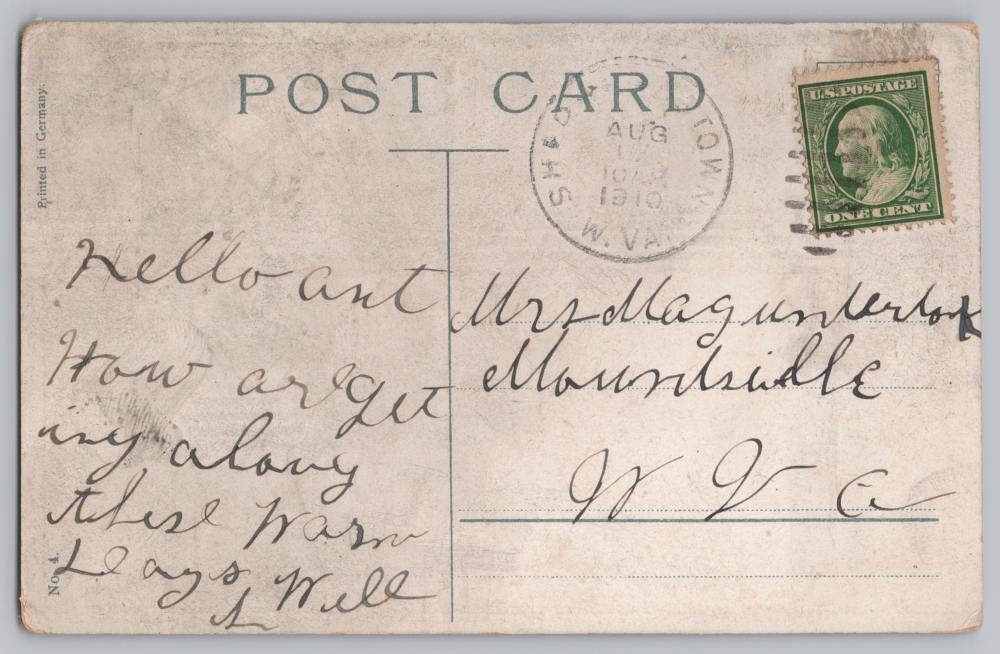 POST CARD
Printed in Germany.
No. 4.
TOWN
AUG
10AM
1910
W. VA.
U.S. POSTAGE
ONE CENT
Hello ant
How are get
ing along
these warm
Days Will
Mrs Mag
Moundsville
W Va